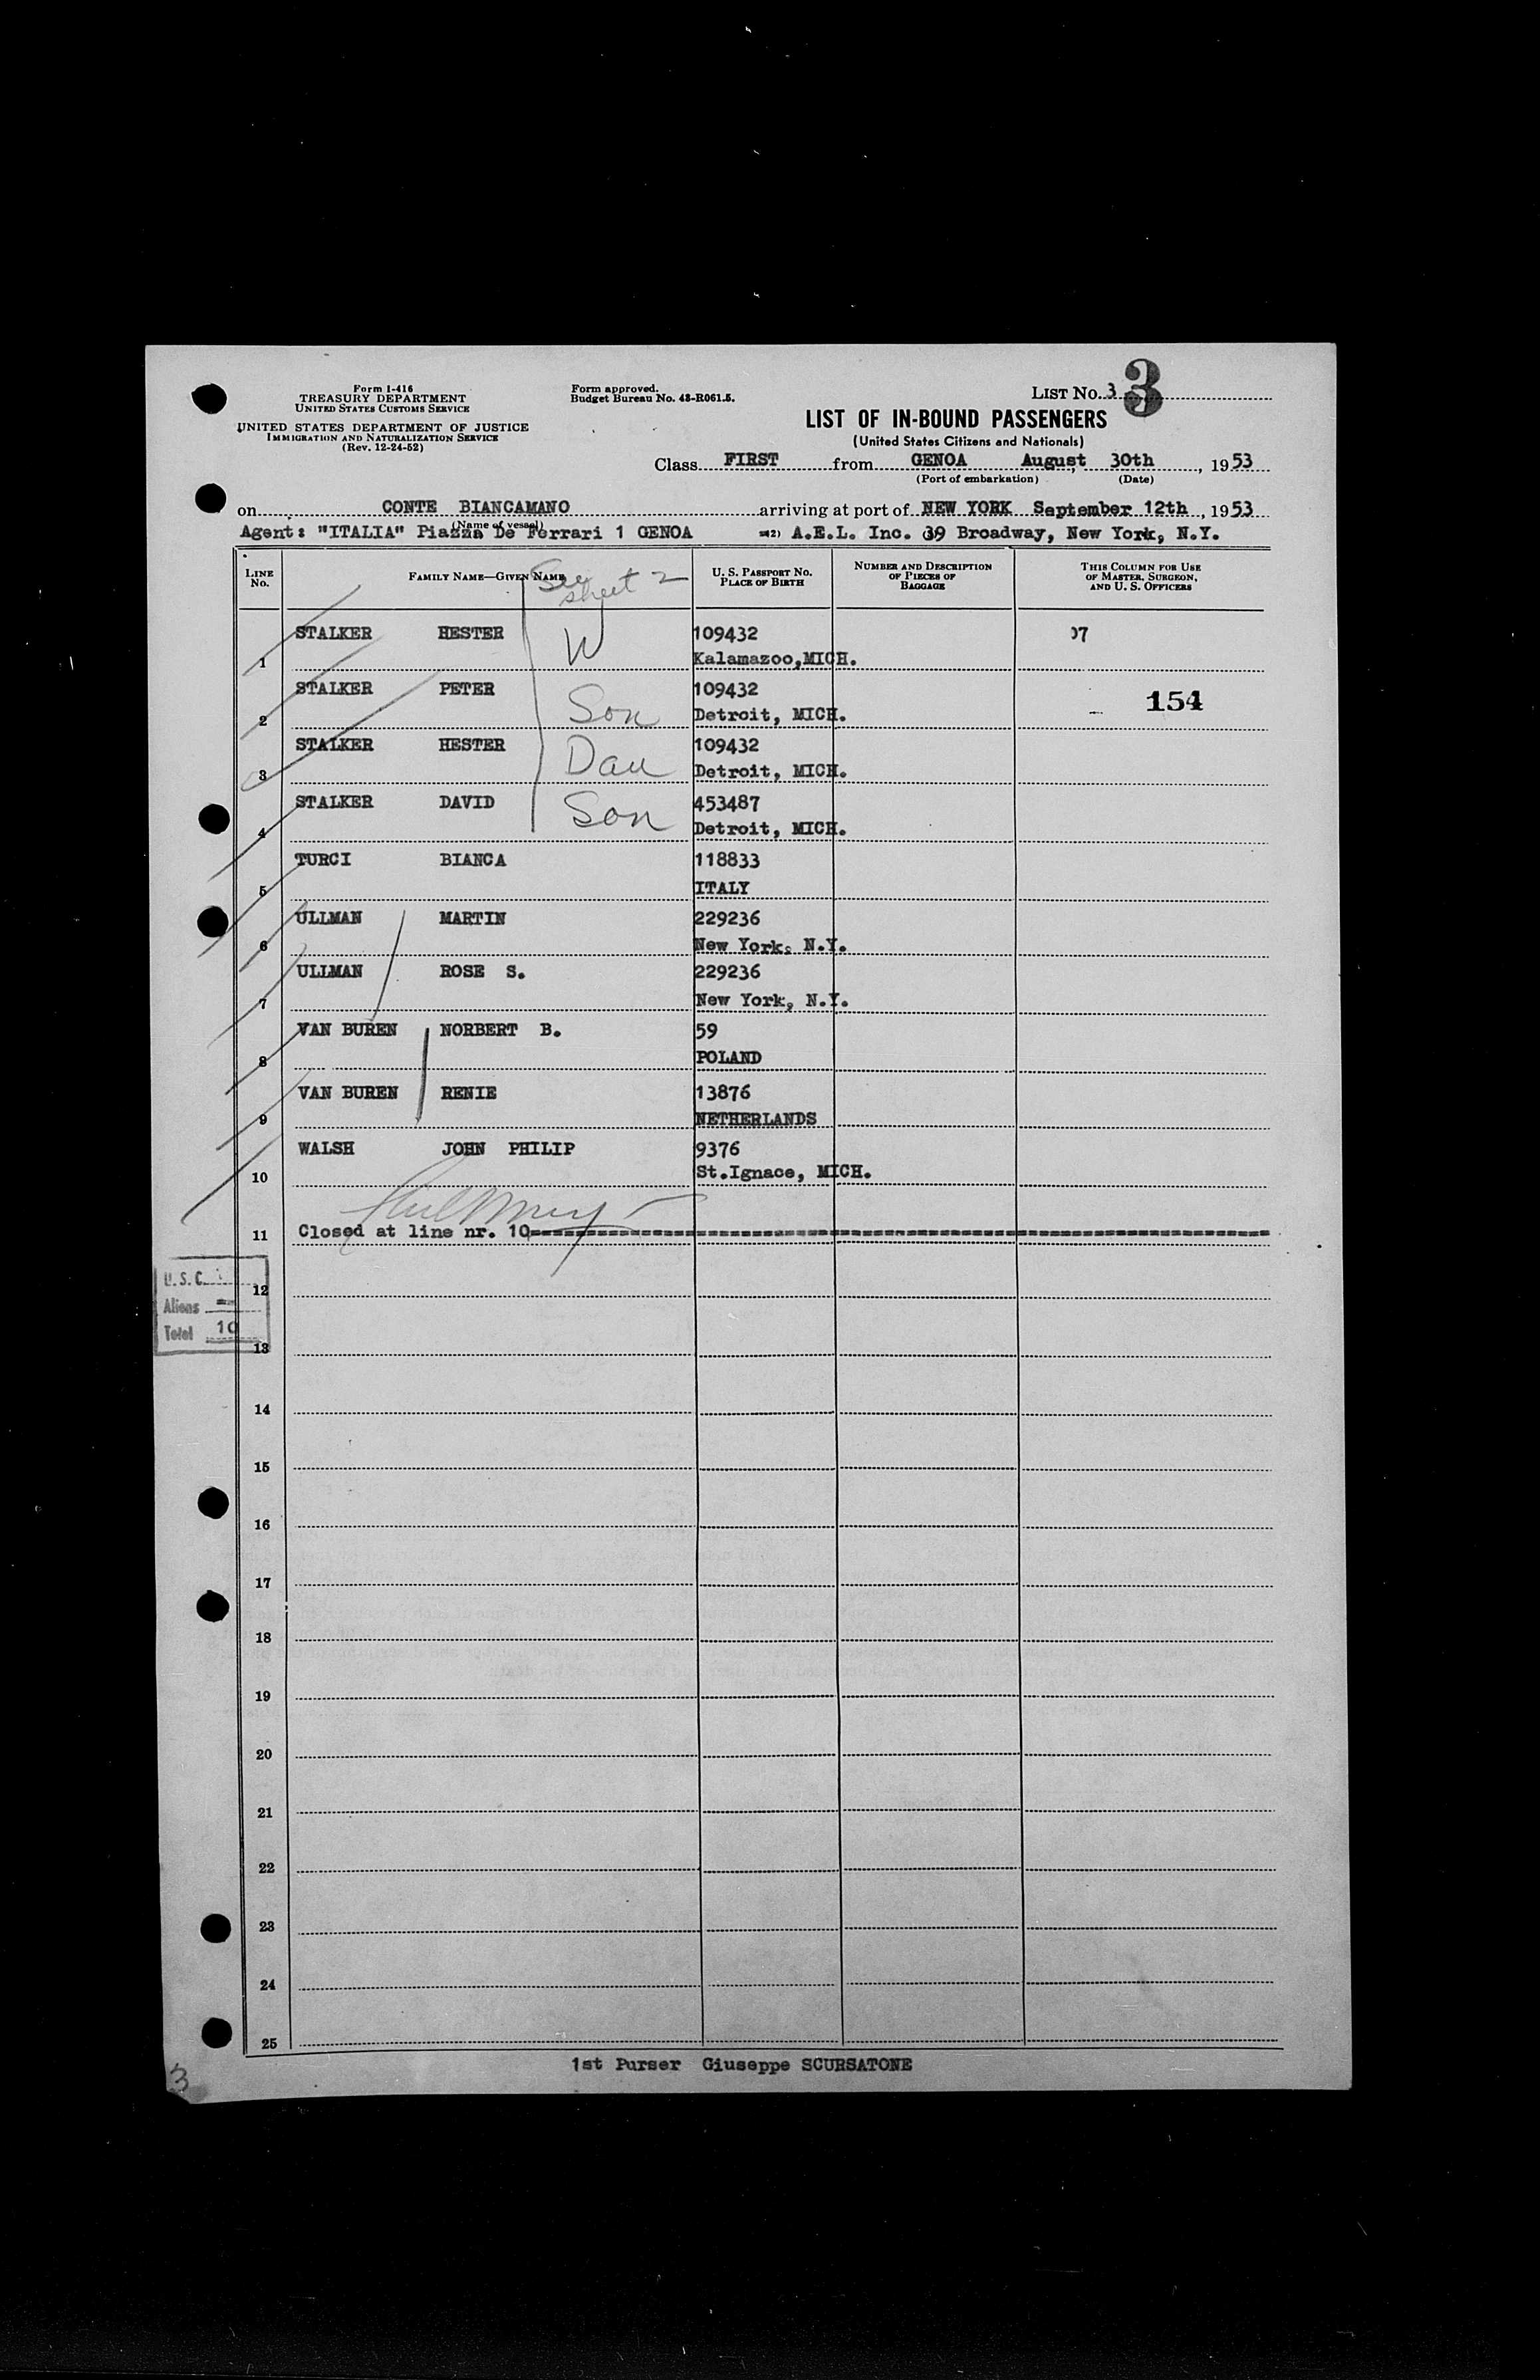 Form I-416
TREASURY DEPARTMENT
UNITED STATES CUSTOMS SERVICE
UNITED STATES DEPARTMENT OF JUSTICE
IMMIGRATION AND NATURALIZATION SERVICE
(Rev. 12-24-52)
Form approved.
Budget Bureau No. 43-R061.5.
LIST No. 3 3
LIST OF IN-BOUND PASSENGERS
(United States Citizens and Nationals)
Class FIRST from GENOA August 30th, 1953
(Port of embarkation) (Date)
on CONTE BIANCAMANO arriving at port of NEW YORK September 12th, 1953
(Name of vessel)
Agent: "ITALIA" Piazza De Ferrari 1 GENOA A.E.L. Inc. 39 Broadway, New York, N.Y.
LINE No. FAMILY NAME—GIVEN NAME U. S. PASSPORT No. PLACE OF BIRTH NUMBER AND DESCRIPTION OF PIECES OF BAGGAGE THIS COLUMN FOR USE OF MASTER, SURGEON, AND U. S. OFFICERS
See sheet 2
STALKER HESTER W 109432 07
1 Kalamazoo,MICH.
STALKER PETER Son 109432 154
2 Detroit, MICH.
STALKER HESTER Dau 109432
3 Detroit, MICH.
STALKER DAVID Son 453487
4 Detroit, MICH.
TURCI BIANCA 118833
5 ITALY
ULLMAN MARTIN 229236
6 New York, N.Y.
ULLMAN ROSE S. 229236
7 New York, N.Y.
VAN BUREN NORBERT B. 59
8 POLAND
VAN BUREN RENIE 13876
9 NETHERLANDS
WALSH JOHN PHILIP 9376
10 St.Ignace, MICH.
11 Closed at line nr. 10
U. S. C.
12
Aliens -
Total 10
13
14
15
16
17
18
19
20
21
22
23
24
25
1st Purser Giuseppe SCURSATONE
3